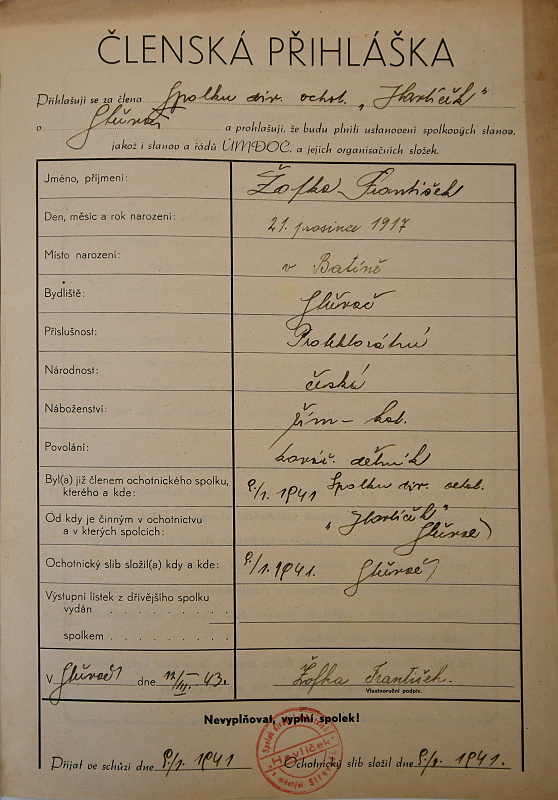 ČLENSKÁ PŘIHLÁŠKA
Přihlašuji se za člena Spolku div. ochot. „Havlíček"
v a prohlašuji, že budu plniti ustanovení spolkových stanov,
jakož i stanov a řádů ÚMDOČ, a jejich organisačních složek.
Jméno, příjmení: Žofka František
Den, měsíc a rok narození: 21. prosince 1917
Místo narození: v Batíně
Bydliště:
Příslušnost: Protektorátní
Národnost: česká
Náboženství: řím-kat.
Povolání: dělník
Byl(a) již členem ochotnického spolku, 9./1. 1941 Spolku div. ochot.
kterého a kde:
Od kdy je činným v ochotnictvu „Havlíček"
a v kterých spolcích:
Ochotnický slib složil(a) kdy a kde: 9./1. 1941.
Výstupní lístek z dřívějšího spolku
vydán . . . . . . . . .
spolkem . . . . . . . .
V dne 12/III. 43. Žofka František.
Vlastnoruční podpis.
Nevyplňovat, vyplní spolek!
Přijat ve schůzi dne 9./1. 1941 Ochotnický slib složil dne 9./1. 1941.
„Havlíček"